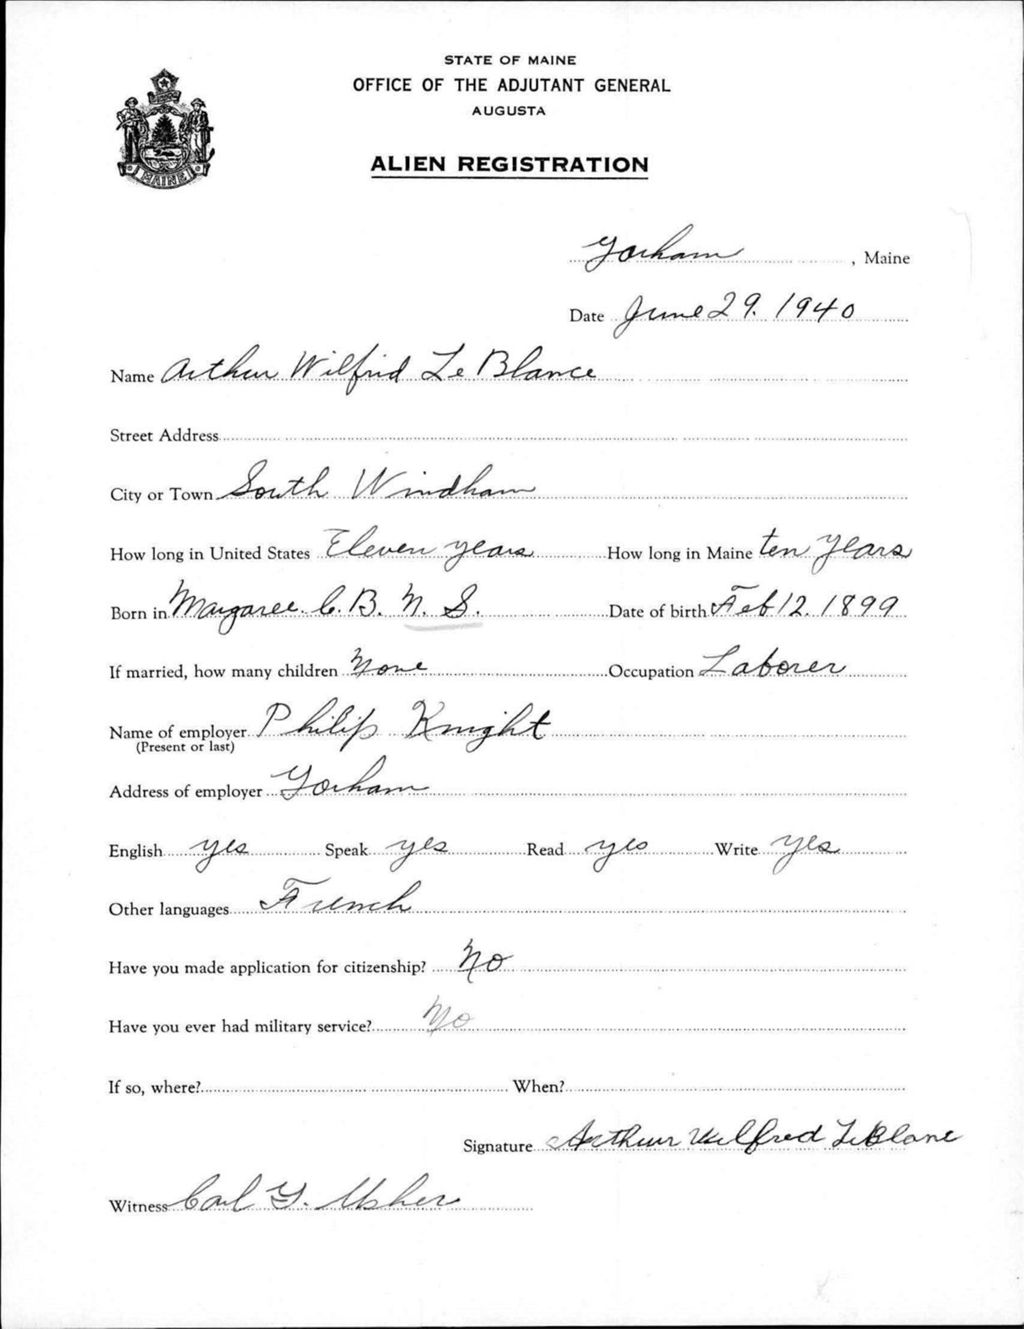 STATE OF MAINE
OFFICE OF THE ADJUTANT GENERAL
AUGUSTA
MAINE
ALIEN REGISTRATION
Gorham, Maine
Date June 29. 1940
Name Arthur Wilfrid Le Blance
Street Address
City or Town South Windham
How long in United States Eleven years How long in Maine ten years
Born in Margaree C. B. N. S. Date of birth Feb 12. 1899
If married, how many children None Occupation Laborer
Name of employer Philip Knight
(Present or last)
Address of employer Gorham
English yes Speak yes Read yes Write yes
Other languages French
Have you made application for citizenship? No
Have you ever had military service? No
If so, where? When?
Signature Arthur Wilfred LeBlanc
Witness Carl G. Usher